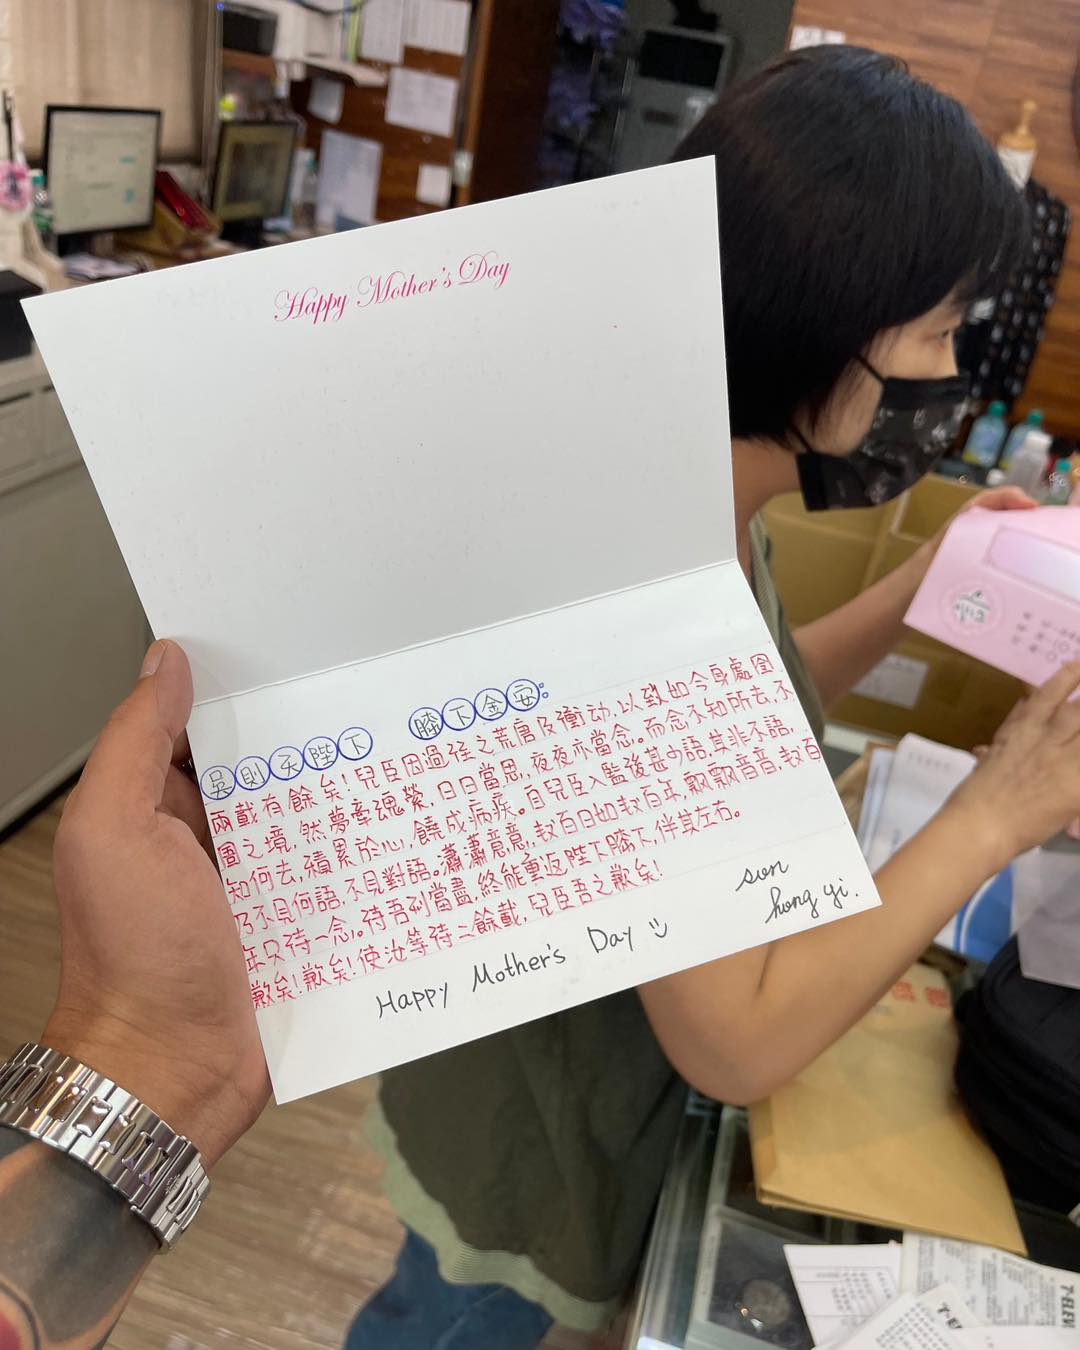 Happy Mother's Day
吳則天陛下 膝下金安:
兩載有餘矣!兒臣因過徃之荒唐及衝动,以致如今身處囹
圄之境,然夢牽魂縈,日日當思,夜夜亦當念。而念不知所去,不
知何去,積累於心,饒成病疾。自兒臣入監後甚少語,其非不語,
乃不見何語,不見對語。瀟瀟意意,数百日如数百年,飄飄音音,数百
年只待一念。待吾刑當盡,終能重返陛下膝下,伴其左右。
歉矣!歉矣!使汝等待二餘載,兒臣吾之歉矣!
Happy Mother's Day
sun
hong yi.
7-ELEVE